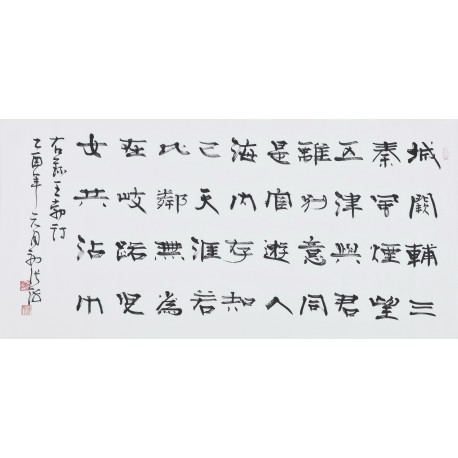 城闕輔三
秦風煙望
五津與君
離別意同
是宦遊人
海內存知
己天涯若
比鄰無為
在岐路兒
女共沾巾
右錄王勃詩
乙酉年元月